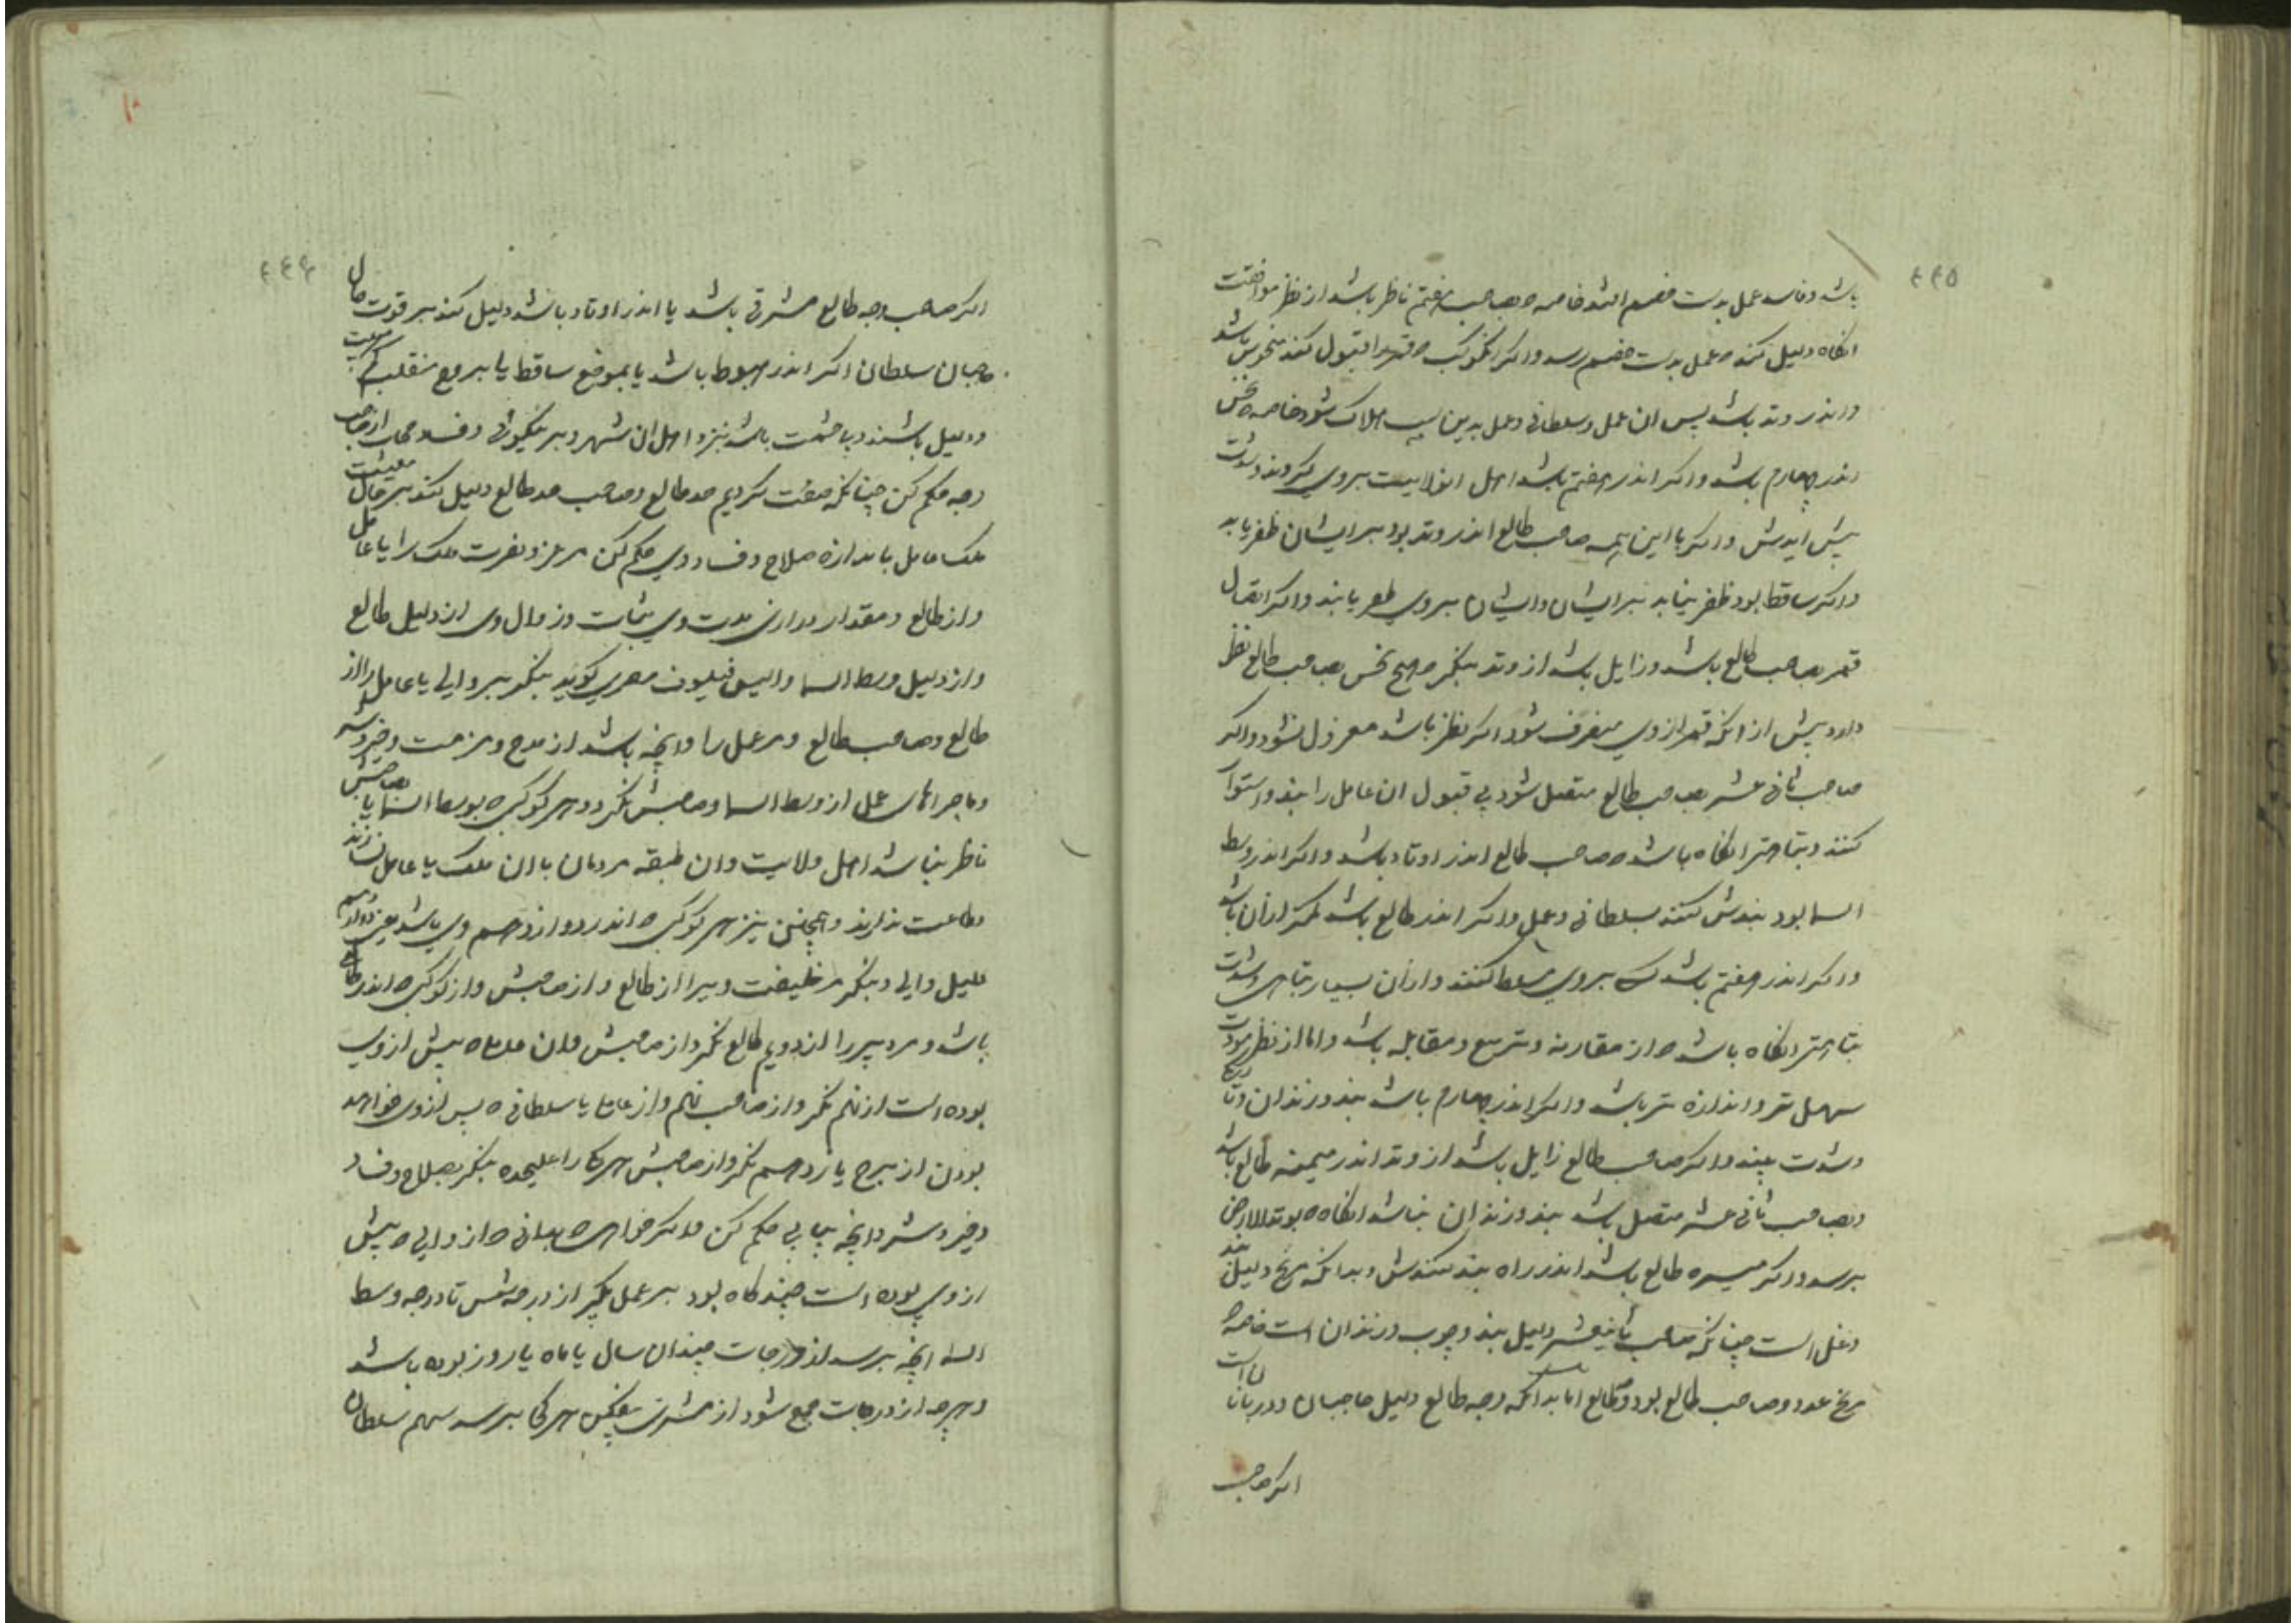 ۴۴۵
باشد و فاسد عمل بدست خصم افتد خاصه که صاحب هفتم ناظر باشد از نظر موافقت
انکاه دلیل کند که عمل بدست خصم رسد و اکر انکوکب که قمر را قبول کند منحوس باشد
و اندر وتد باشد پس ان عمل و سلطانی و عمل بدین سبب هلاک شود خاصه که نحس
اندر چهارم باشد و اکر اندر هفتم باشد اهل ان ولایت بروی کردند و شدت
پیش ایدش و اکر با این همه صاحب طالع اندر وتد بود بر ایشان ظفر یابد
و اکر ساقط بود ظفر نیابد بر ایشان و ایشان بروی ظفر یابند و اکر اتصال
قمر بصاحب طالع باشد و زایل باشد از وتد بنکر هیچ نحس بصاحب طالع نظر
دارد پیش از انکه قمر از وی منصرف شود اکر نظر باشد معزول نشود و اکر
صاحب ثانی عشر بصاحب طالع متصل شود بی قبول ان عامل را بند و استوار
کنند و بتاهتر انکاه باشد که صاحب طالع اندر اوتاد باشد و اکر اندر وسط
السما بود بندش کنند بسلطانی و عمل و اکر اندر طالع باشد کمتر از ان باشد
و اکر اندر هفتم باشد کس بروی مسلط کنند و از ان بسیار بتاهی و شدت
بتاهتر انکاه باشد که از مقارنه و تربیع و مقابله باشد و اما از نظر مودت
سهل تر و اندازه تر باشد و اکر اندر چهارم باشد بند و زندان و تاریکی
و شدت بیند و اکر صاحب طالع زایل باشد از وتد اندر میمنه طالع باشد
و بصاحب ثانی عشر متصل باشد بند و زندان نباشد انکاه که بوتد الارض
برسد و اکر میسره طالع باشد اندر راه بند کنندش و بدانکه مریخ دلیل بند
و غل است چنانکه صاحب ثانیعشر دلیل بند و چوب و زندان است خاصه که
مریخ عدو و صاحب طالع بود و طالع اما بدانکه وجه طالع دلیل حاجبان و دربانان است
اکر صاحب
۴۴۶
اکر صاحب وجه طالع مشرقی باشد یا اندر اوتاد باشد دلیل کند بر قوت حال
حاجبان سلطان اکر اندر هبوط باشد یا بموضع ساقط یا ببرج منقلب
و دلیل باشند و با حشمت باشد نزد اهل ان شهر و بر نیکوئی و فساد از صاحب
وجه حکم کن چنانکه صفت کردیم حد طالع و صاحب حد طالع دلیل کند بر حال معیشت
ملک عامل باندازه صلاح و فساد وی حکم کن مر عز و نصرت ملک را یا عامل
را از طالع و مقدار درازی مدت وی بثبات و زوال وی از دلیل طالع
و از دلیل وسط السما والیس فیلسوف مصری کوید بنکر بر والی یا عامل را از
طالع و صاحب طالع و مر عمل را و انچه باشد از مدح و مزمت و خیر و شر
و ماجراهای عمل از وسط السما و صاحبش نکر و هر کوکبی که بوسط السما یا بصاحبش
ناظر نباشد اهل ولایت و ان طبقه مردمان با ان ملک یا عامل نسازند
و طاعت ندارند و همچنین نیز هر کوکبی که اندر دوازدهم وی باشد یعنی دوازدهم
دلیل والی و بنکر مر خلیفت ویرا از طالع و از صاحبش و از کوکبی که اندر طالع
باشد و مر دبیر را از دویم طالع نکر و از صاحبش و ان عاملی که پیش از وی
بوده است از نهم نکر و از صاحب نهم و از عاملی یا سلطانی که پس از وی خواهد
بودن از برج یازدهم نکر و از صاحبش هر یکی را علیحده بنکر بصلاح و فساد
و خیر و شر و انچه بیابی حکم کن و اکر خواهی که بدانی که از والی که پیش
از وی بوده است چند کاه بود بر عمل بکیر از درجه شمس تا درجه وسط
السما انچه برسد از درجات چندان سال یا ماه یا روز بوده باشد
و هر چه از درجات جمع شود از مشتری بیفکن هر کجا برسد سهم سلطان